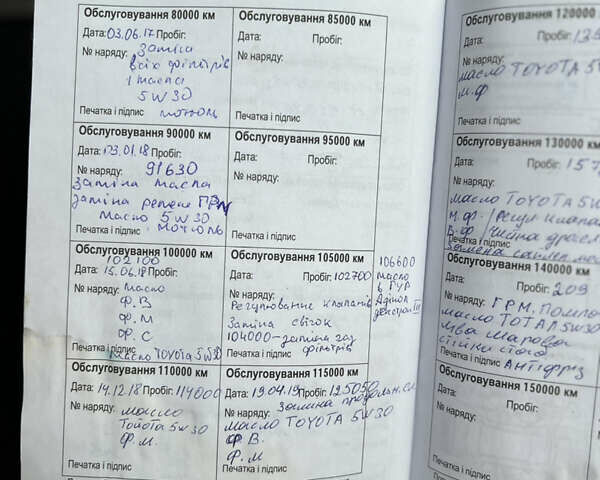 Обслуговування 80000 км
Дата: 03.06.17 Пробіг:
№ наряду: Заміна
всіх фільтрів
і масла
5W30
Печатка і підпис мотюль
Обслуговування 85000 км
Дата: Пробіг:
№ наряду:
Печатка і підпис
Обслуговування 90000 км
Дата: 03.01.18 Пробіг:
№ наряду: 91630
Заміна масла
Заміна ременя ГРМ
масло 5W30
Печатка і підпис мотюль
Обслуговування 95000 км
Дата: Пробіг:
№ наряду:
Печатка і підпис
Обслуговування 100000 км
102100
Дата: 15.06.18 Пробіг:
№ наряду: Масло
Ф.В
Ф.М
Ф.С
Печатка і підпис
Масло TOYOTA 5W30
Обслуговування 105000 км
Дата: Пробіг: 102700
№ наряду:
Регулювання клапанів
Заміна свічок
104000-заміна газ
фільтрів
Печатка і підпис
106600
масло
в ГУР
Обслуговування 110000 км
Дата: 14.12.18 Пробіг: 114000
№ наряду: масло
Toyota 5w30
Ф.М.
Печатка і підпис
Обслуговування 115000 км
Дата: 19.04.19 Пробіг: 125050
№ наряду: Замина
масло TOYOTA 5W30
Ф В.
Ф.М
Печатка і підпис
Обслуговування 120000
Дата: Пробіг:
№ наряду:
масло TOYOTA 5
М.Ф
Печатка і підпис
Обслуговування 130000 км
Дата: Пробіг: 157
№ наряду:
масло TOYOTA 5W
М.Ф. Регул клапа
В.Ф. Чистка
Печатка і підпис
Обслуговування 140000
Дата: Пробіг: 209
№ наряду: ГРМ, Помпа
масло TOTAL 5W30
Печатка і підпис Антифриз
Обслуговування 150000
Дата: Пробіг:
№ наряду:
Печатка і підпис